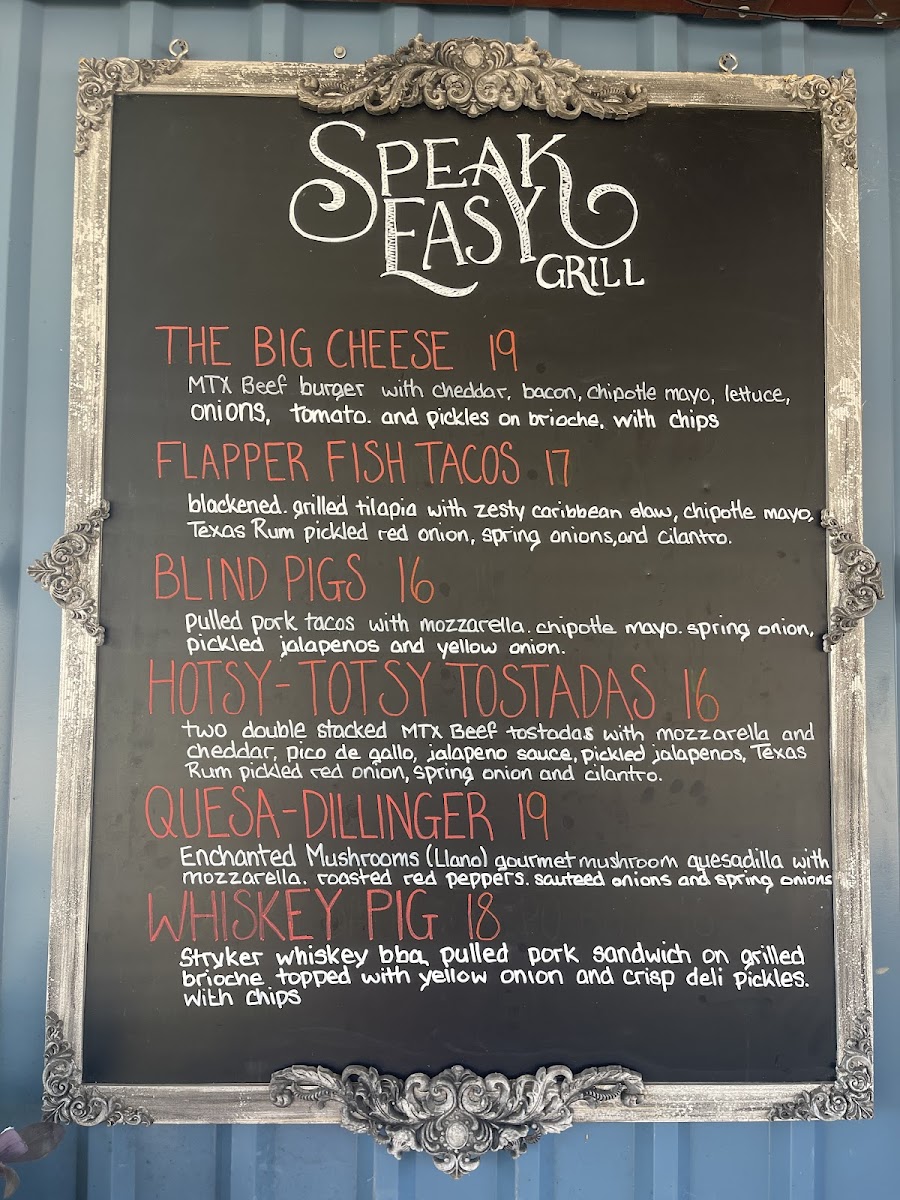 SPEAK
EASY
GRILL
THE BIG CHEESE 19
MTX Beef burger with cheddar, bacon, chipotle mayo, lettuce,
onions, tomato. and pickles on brioche, with chips
FLAPPER FISH TACOS 17
blackened. grilled tilapia with zesty caribbean slaw, chipotle mayo,
Texas Rum pickled red onion, spring onions, and cilantro.
BLIND PIGS 16
pulled pork tacos with mozzarella. chipotle mayo. spring onion,
pickled jalapenos and yellow onion.
HOTSY-TOTSY TOSTADAS 16
two double stacked MTX Beef tostadas with mozzarella and
cheddar, pico de gallo, jalapeno sauce, pickled jalapenos, Texas
Rum pickled red onion, spring onion and cilantro.
QUESA-DILLINGER 19
Enchanted Mushrooms (Llano) gourmet mushroom quesadilla with
mozzarella. roasted red peppers. sauteed onions and spring onions
WHISKEY PIG 18
Stryker whiskey bbq pulled pork sandwich on grilled
brioche topped with yellow onion and crisp deli pickles.
with chips